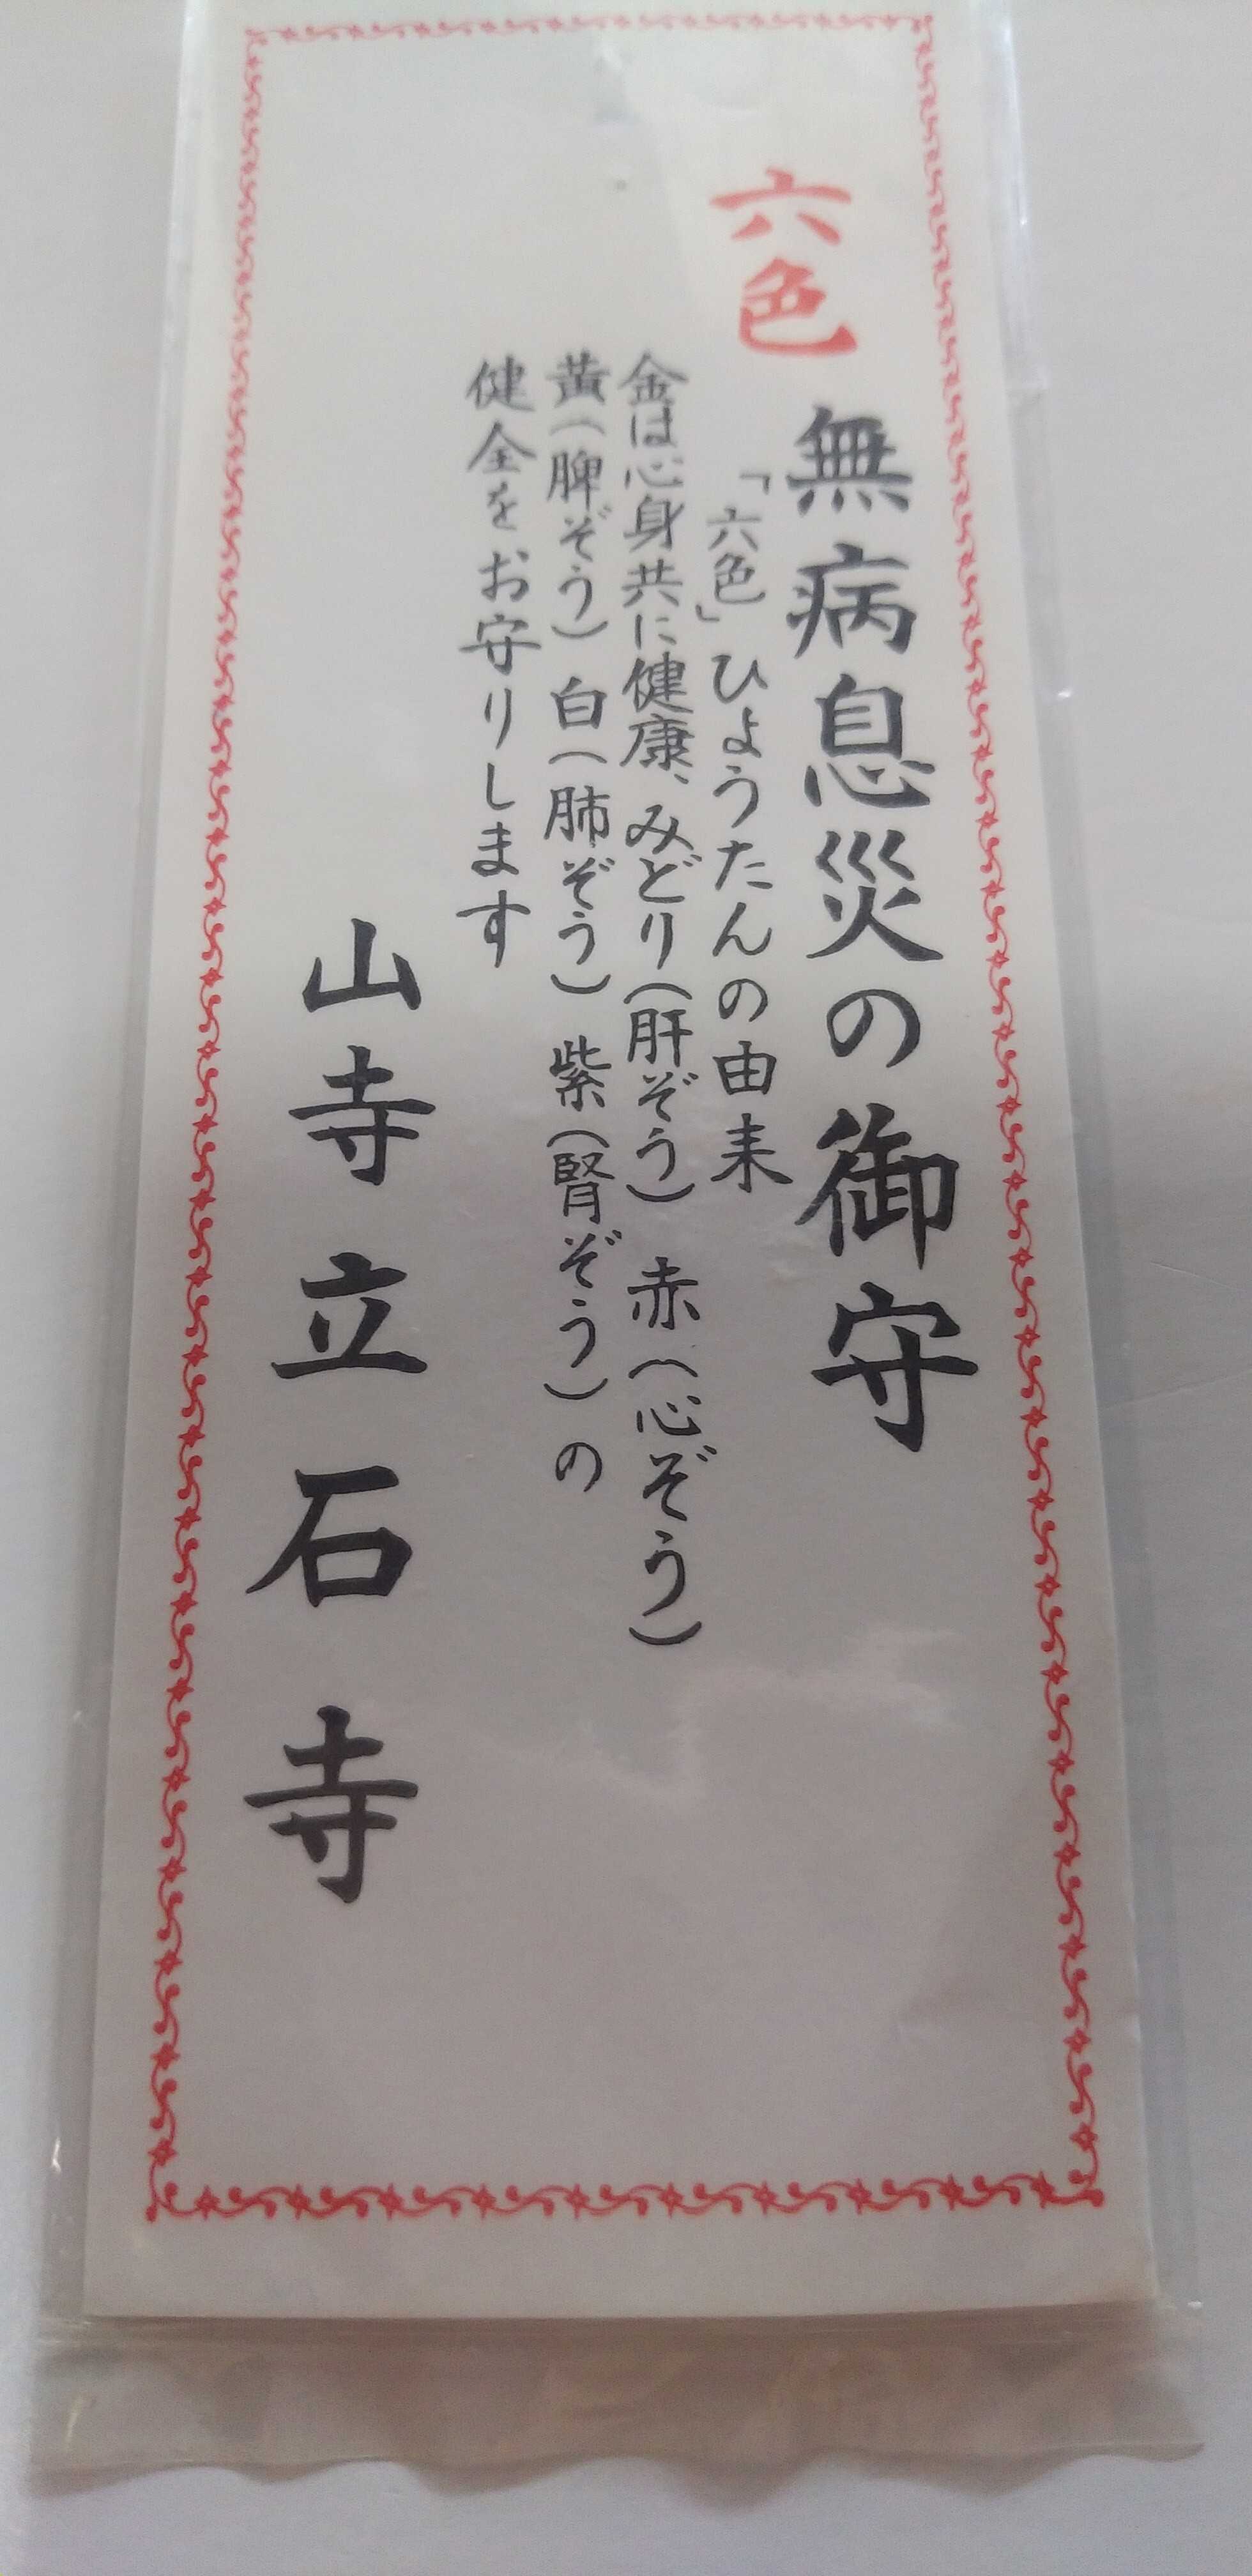 六色
無病息災の御守
「六色」ひょうたんの由来
金は心身共に健康、みどり(肝ぞう) 赤(心ぞう)
黄(脾ぞう) 白(肺ぞう) 紫(腎ぞう)の
健全をお守りします
山寺立石寺